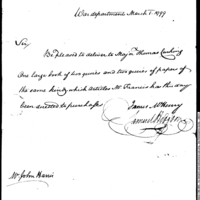 War department March 1. 1799
Sir,
Be pleased to deliver to Majr. Thomas Cushing
One large book of two quires and two quires of paper of
the same kind, which articles Mr Francis has this day
been directed to purchase
James McHenry
Samuel Hodgdon
Mr John Harris